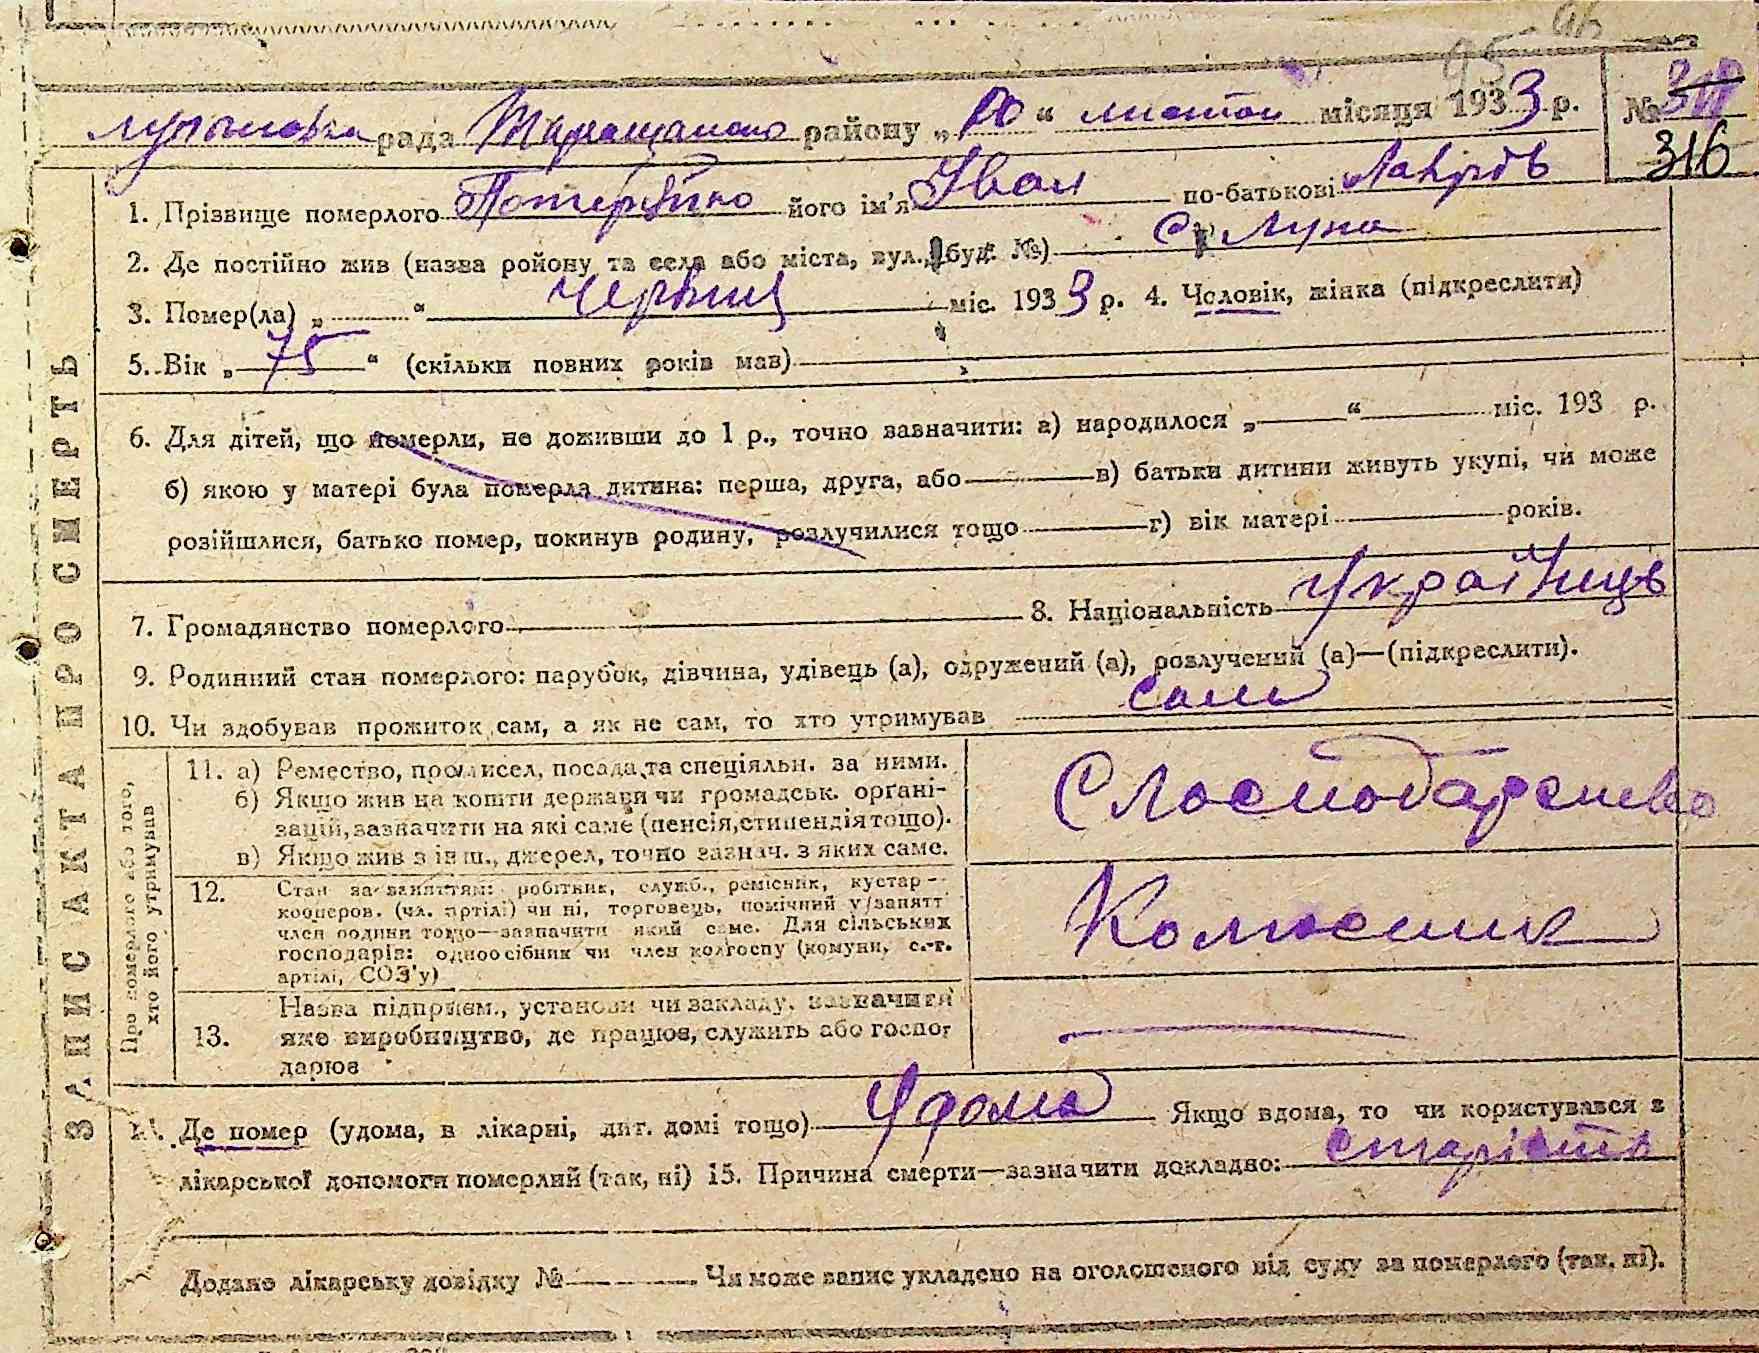 95-96
рада Таращансько району „ 20 “ листоп місяця 1933 р. №
316
1. Прізвище померлого Потерійко його ім'я Іван по-батькові Лавров
2. Де постійно жив (назва ройону та села або міста, вул., буд. №) с. Лука
3. Помер(ла) „ “ червнц міс. 1933 р. 4. Чоловік, жінка (підкреслити)
5. Вік „ 75 “ (скільки повних років мав)
6. Для дітей, що померли, не доживши до 1 р., точно зазначити: а) народилося „ “ міс. 193 р.
б) якою у матері була померла дитина: перша, друга, або в) батьки дитини живуть укупі, чи може
розійшлися, батько помер, покинув родину, розлучилися тощо г) вік матері років.
7. Громадянство померлого 8. Національність Українець
9. Родинний стан померлого: парубок, дівчина, удівець (а), одружений (а), розлучений (а)—(підкреслити).
10. Чи здобував прожиток сам, а як не сам, то хто утримував сам
ЗАПИС АКТА ПРО СМЕРТЬ
Про померлого або того,
хто його утримував
11. а) Ремество, промисел, посада та спеціяльн. за ними.
б) Якщо жив на кошти держави чи громадськ. орґані-
зацій, зазначити на які саме (пенсія, стипендія тощо).
в) Якщо жив з інш., джерел, точно зазнач. з яких саме.
12. Стан за заняттям: робітник, служб., ремісник, кустар-
кооперов. (чл. артілі) чи ні, торговець, помічний у занятт
член родини тощо—зазначити який саме. Для сільських
господарів: одноосібник чи член колгоспу (комуни, с.-г.
артілі, СОЗ'у)
Колгосник
13. Назва підприєм., установи чи закладу, зазначити
яке виробництво, де працює, служить або госпо-
дарює
14. Де помер (удома, в лікарні, дит. домі тощо) Удома Якщо вдома, то чи користувався з
лікарської допомоги померлий (так, ні) 15. Причина смерти—зазначити докладно: старість
Додано лікарську довідку № Чи може запис укладено на оголошеного від суду за померлого (так, ні).